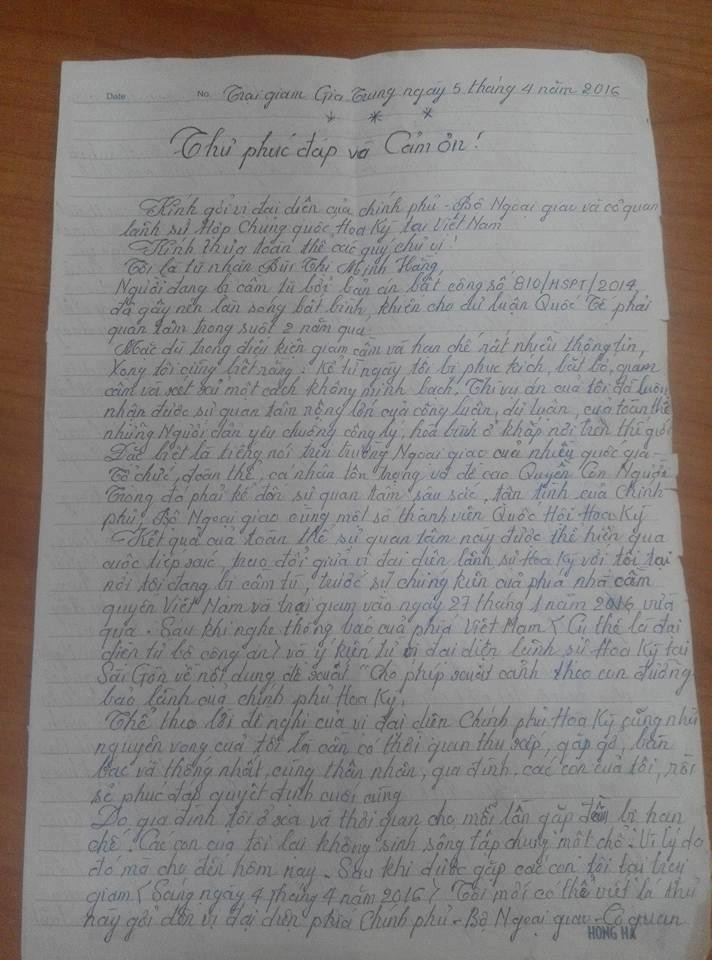 Date No. Trại giam Gia Trung ngày 5 tháng 4 năm 2016
* * *
Thư phúc đáp và Cảm ơn!
Kính gởi vị đại diện của chính phủ - Bộ Ngoại giao và cơ quan
lãnh sự Hợp Chung quốc Hoa Kỳ tại Việt Nam
Kính thưa toàn thể các quý chư vị!
Tôi là tù nhân Bùi Thị Minh Hằng,
Người đang bị cầm tù bởi bản án bất công số 810/HSPT/2014,
đã gây nên làn sóng bất bình, khiến cho dư luận Quốc Tế phải
quan tâm trong suốt 2 năm qua
Mặc dù trong điều kiện giam cầm và hạn chế rất nhiều thông tin,
Xong tôi cũng biết rằng: Kể từ ngày tôi bị phục kích, bắt bớ, giam
cầm và xét xử một cách không minh bạch. Thì vụ án của tôi đã luôn
nhận được sự quan tâm rộng lớn của công luận, dư luận, của toàn thể
những Người dân yêu chuộng công lý, hòa bình ở khắp nơi trên thế giới
Đặc biệt là tiếng nói trên trường Ngoại giao của nhiều quốc gia -
Tổ chức, đoàn thể, cá nhân tôn trọng và đề cao Quyền Con Người
Trong đó phải kể đến sự quan tâm sâu sắc, tận tình của Chính
phủ, Bộ Ngoại giao cùng một số thành viên Quốc Hội Hoa Kỳ
Kết quả của toàn thể sự quan tâm này được thể hiện qua
cuộc tiếp xúc, trao đổi giữa vị đại diện lãnh sự Hoa Kỳ với tôi tại
nơi tôi đang bị cầm tù, trước sự chứng kiến của phía nhà cầm
quyền Việt Nam và trại giam vào ngày 27 tháng 1 năm 2016 vừa
qua. Sau khi nghe thông báo của phía Việt Nam (Cụ thể là đại
diện từ bộ công an) và ý kiến từ vị đại diện lãnh sự Hoa Kỳ tại
Sài Gòn về nội dung đề xuất "Cho phép xuất cảnh theo con đường
bảo lãnh của chính phủ Hoa Kỳ.
Thể theo lời đề nghị của vị đại diện Chính phủ Hoa Kỳ cũng như
nguyện vọng của tôi là cần có thời gian thu xếp, gặp gỡ, bàn
bạc và thống nhất cùng thân nhân, gia đình, các con của tôi, rồi
sẽ phúc đáp quyết định cuối cùng
Do gia đình tôi ở xa và thời gian cho mỗi lần gặp đều bị hạn
chế. Các con của tôi lại không sinh sống tập chung một chỗ. Vì lý do
đó mà cho đến hôm nay. Sau khi được gặp các con tôi tại trại
giam (Sáng ngày 4 tháng 4 năm 2016) Tôi mới có thể viết lá thư
này gởi đến vị đại diện phía Chính phủ - Bộ Ngoại giao - Cơ quan
HONG HA